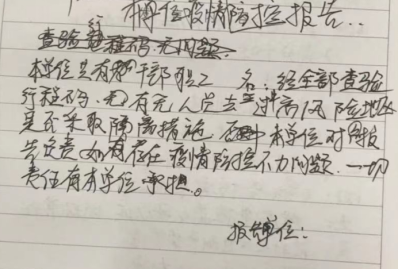 单位疫情防控报告..
查验行程码无问题.
本单位共有干部职工 名:经全部查验
行程码.有无人员去过高风险地区
是否采取隔离措施. 本单位对报
告负责如有存在疫情防控不力问题.一切
责任有本单位承担。
报单位: